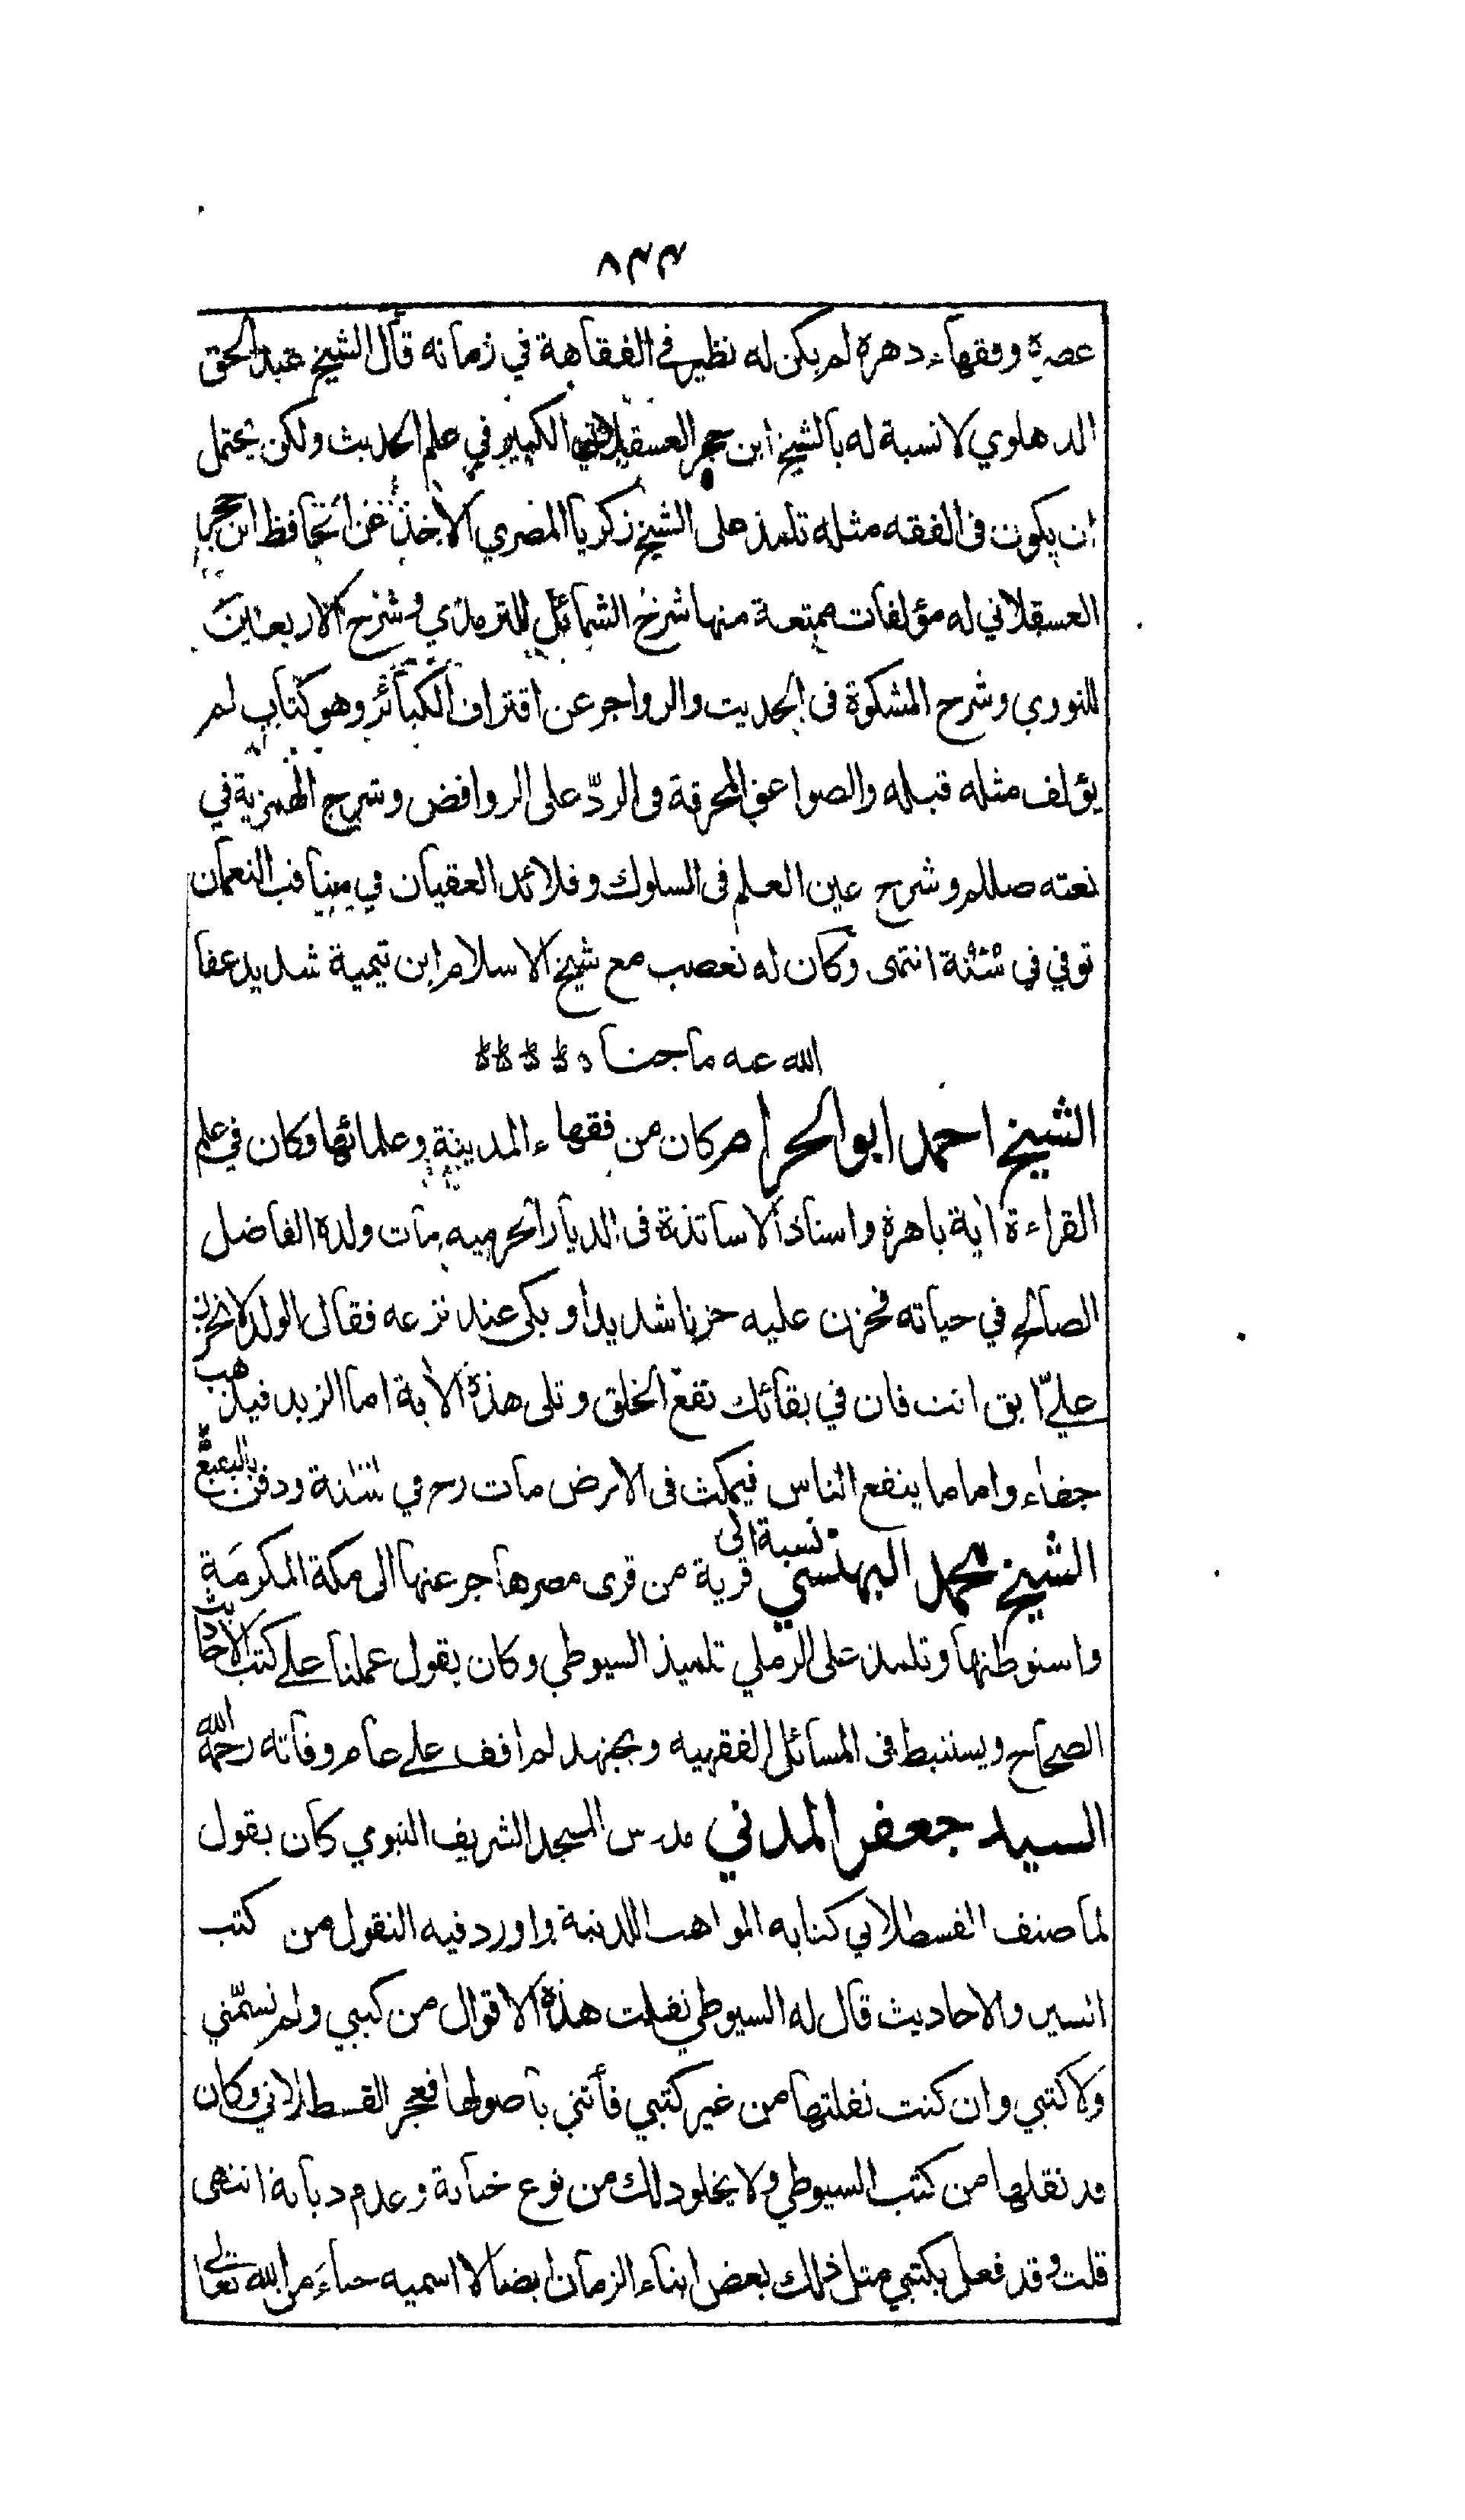 ٨٤٤
عصره وفقهاء دهره لم يكن له نظير في الفقاهة في زمانه قال الشيخ عبد الحق
الدهلوي لا نسبة له بالشيخ ابن حجر العسقلاني الكبير في علم الحديث ولكن يحتمل
ان يكون فى الفقه مثله تلمذ على الشيخ زكريا المصري الأخذ عن الحافظ ابن حجر
العسقلاني له مؤلفات ممتعة منها شرح الشمائل للترمذي وشرح الاربعين
للنووي وشرح المشكوة فى الحديث والزواجر عن اقتراف الكبائر وهو كتاب لم
يؤلف مثله قبله والصواعق المحرقة فى الردّ على الروافض وشرح الهمزية في
نعته صللم وشرح عين العلم فى السلوك وقلائد العقيان في مناقب النعمان
توفي في سنة انتهى وكان له تعصب مع شيخ الاسلام ابن تيمية شديد عفا
الله عنه ما جناه
الشيخ احمد ابو الحرام كان من فقهاء المدينة وعلمائها وكان في علم
القراءة اية باهرة واستاذ الاساتذة فى الديار الحرمية مات ولده الفاضل
الصالح في حياته فحزن عليه حزنا شديدا وبكى عند نزعه فقال الولد لا تحزن
علىّ ابق انت فان في بقائك نفع الخلق وتلى هذه الأية اما الزبد فيذهب
جفاء واما ما ينفع الناس فيمكث فى الارض مات رح في سنة ودفن بالبقيع
الشيخ محمد البهنسي نسبة الى قرية من قرى مصر هاجر عنها الى مكة المكرمة
واستوطنها وتلمذ على الرملي تلميذ السيوطي وكان يقول عملنا على كتب الاحاديث
الصحاح ويستنبط فى المسائل الفقهيه ويجتهد لم اقف على عام وفاته رحمه الله
السيد جعفر المدني مدرس المسجد الشريف النبوي كان يقول
لما صنف القسطلاني كتابه المواهب اللدنية واورد فيه النقول من كتب
السير والاحاديث قال له السيوطي نقلت هذه الاقوال من كتبي ولم تسمّني
ولا كتبي وان كنت نقلتها من غير كتبي فأتني باصولها فعجز القسطلاني وكان
قد نقلها من كتب السيوطي ولا يخلو ذلك من نوع خيانة وعدم ديانة انتهى
قلت وقد فعل بكتبي مثل ذلك بعض ابناء الزمان ايضا لا اسميه حياءً من الله تعالى